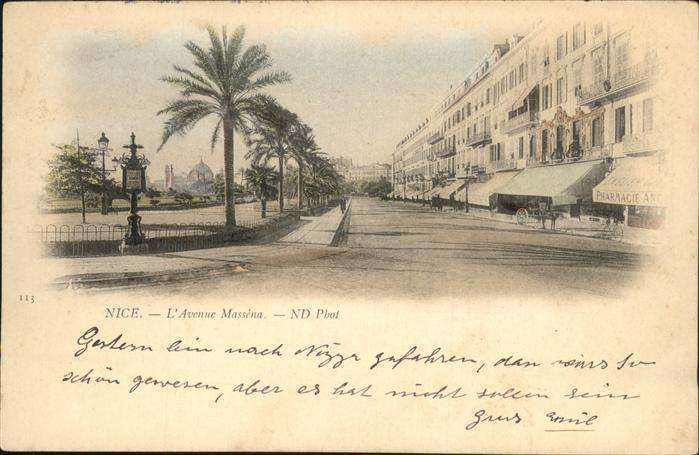 PHARMACIE ANG
113
NICE. — L'Avenue Masséna. — ND Phot
Gestern bin nach Nizza gefahren, dan wärs so
schön gewesen, aber es hat nicht sollen sein
Grus Emil